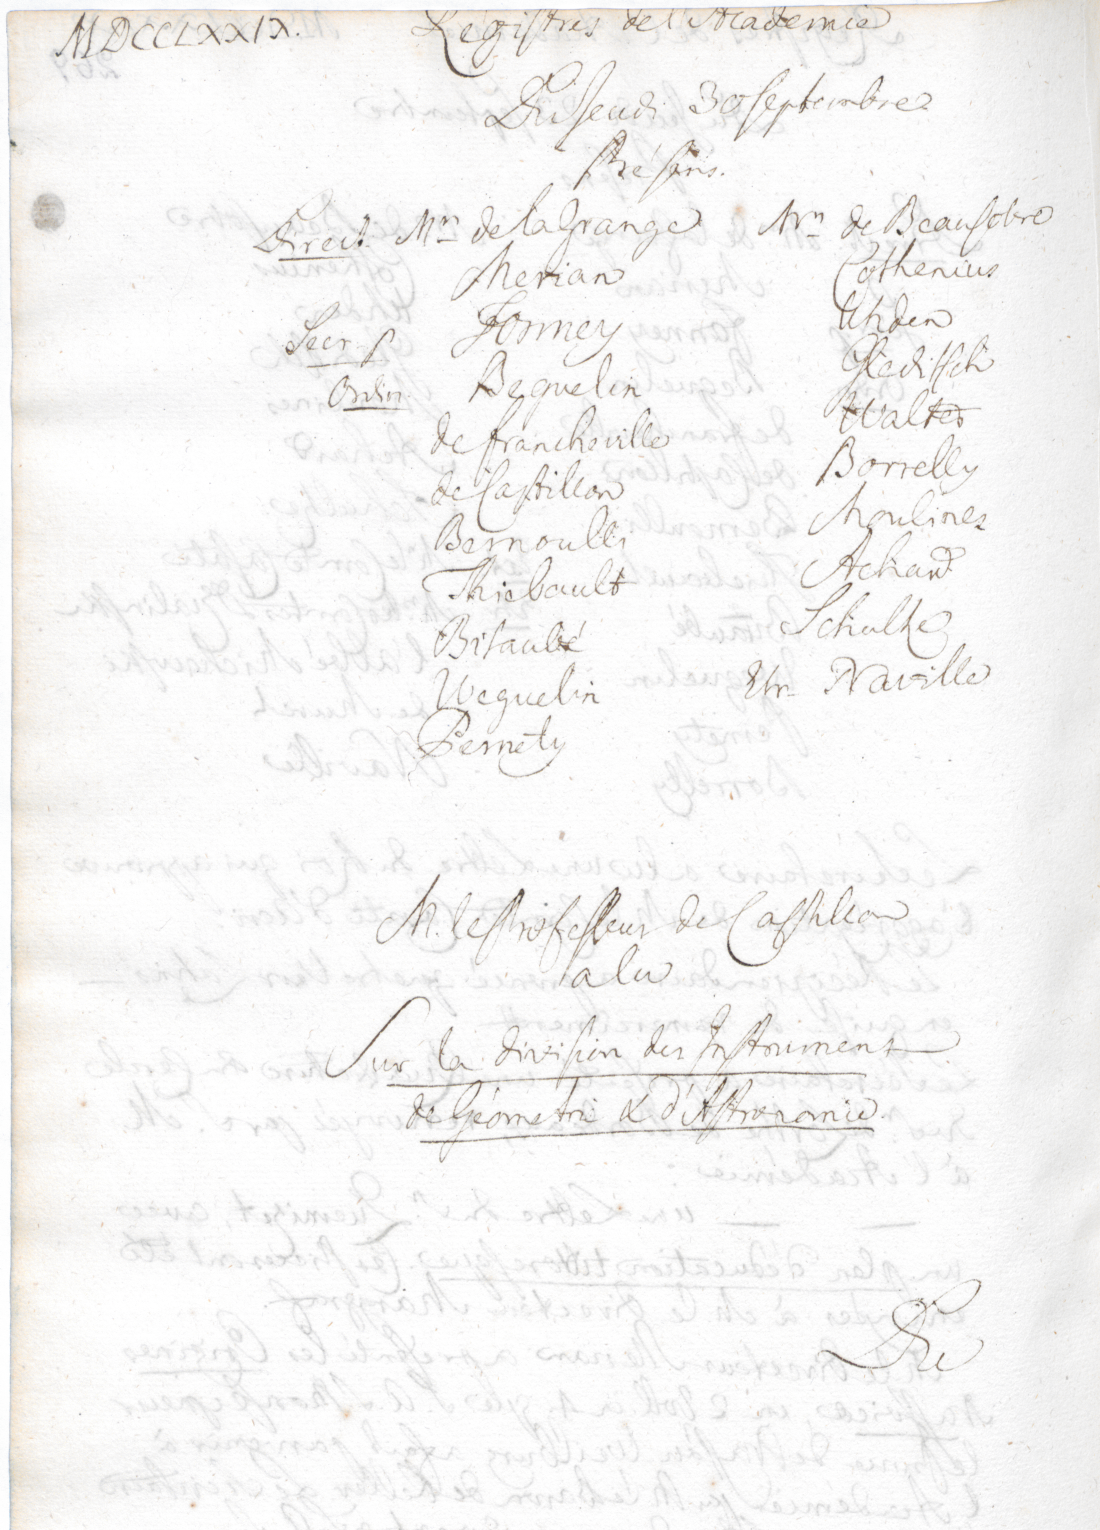 MDCCLXXIX. Registres de l'Academie
Du Jeudi 30 Septembre
Présens.
Direct. Mrs de la Grange
Merian
Secr. p. Formey
Ordin. Beguelin
de Francheville
de Castillon
Bernoulli
Thiebault
Bitaubé
Weguelin
Pernety
Mrs de Beausobre
Cothenius
Uhden
Gleditsch
Walter
Borrelly
Moulines
Achard
Schulze
Etr. Naville
M. le Professeur de Castillon
a lu
Sur la division des Instrumens
de Géometrie & d'Astronomie.
Du